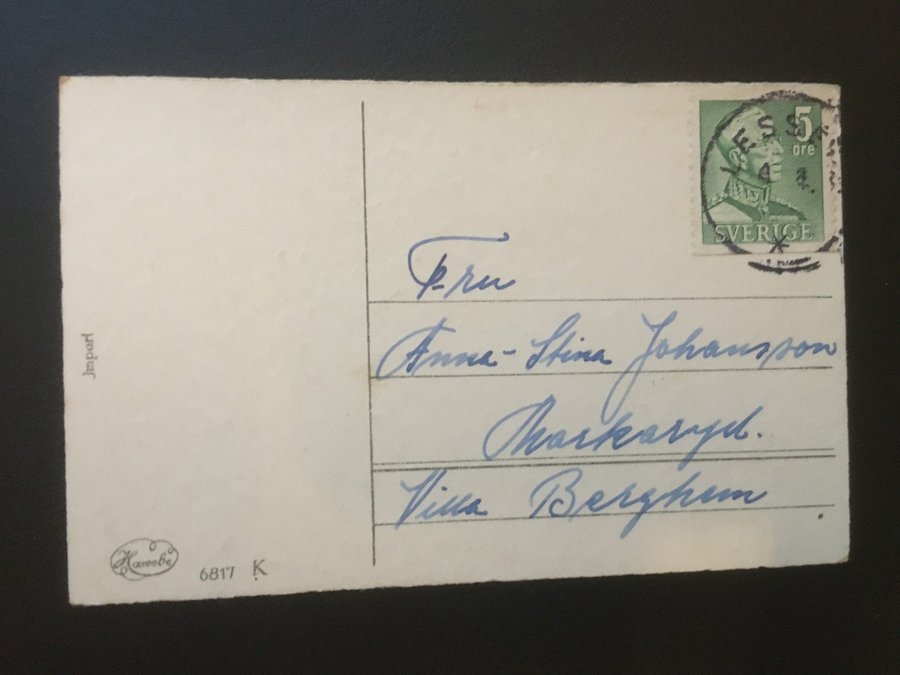 5
öre
SVERIGE
Fru
Anna-Stina Johansson
Markaryd.
Villa Berghem
Import
Hawebe
6817 K